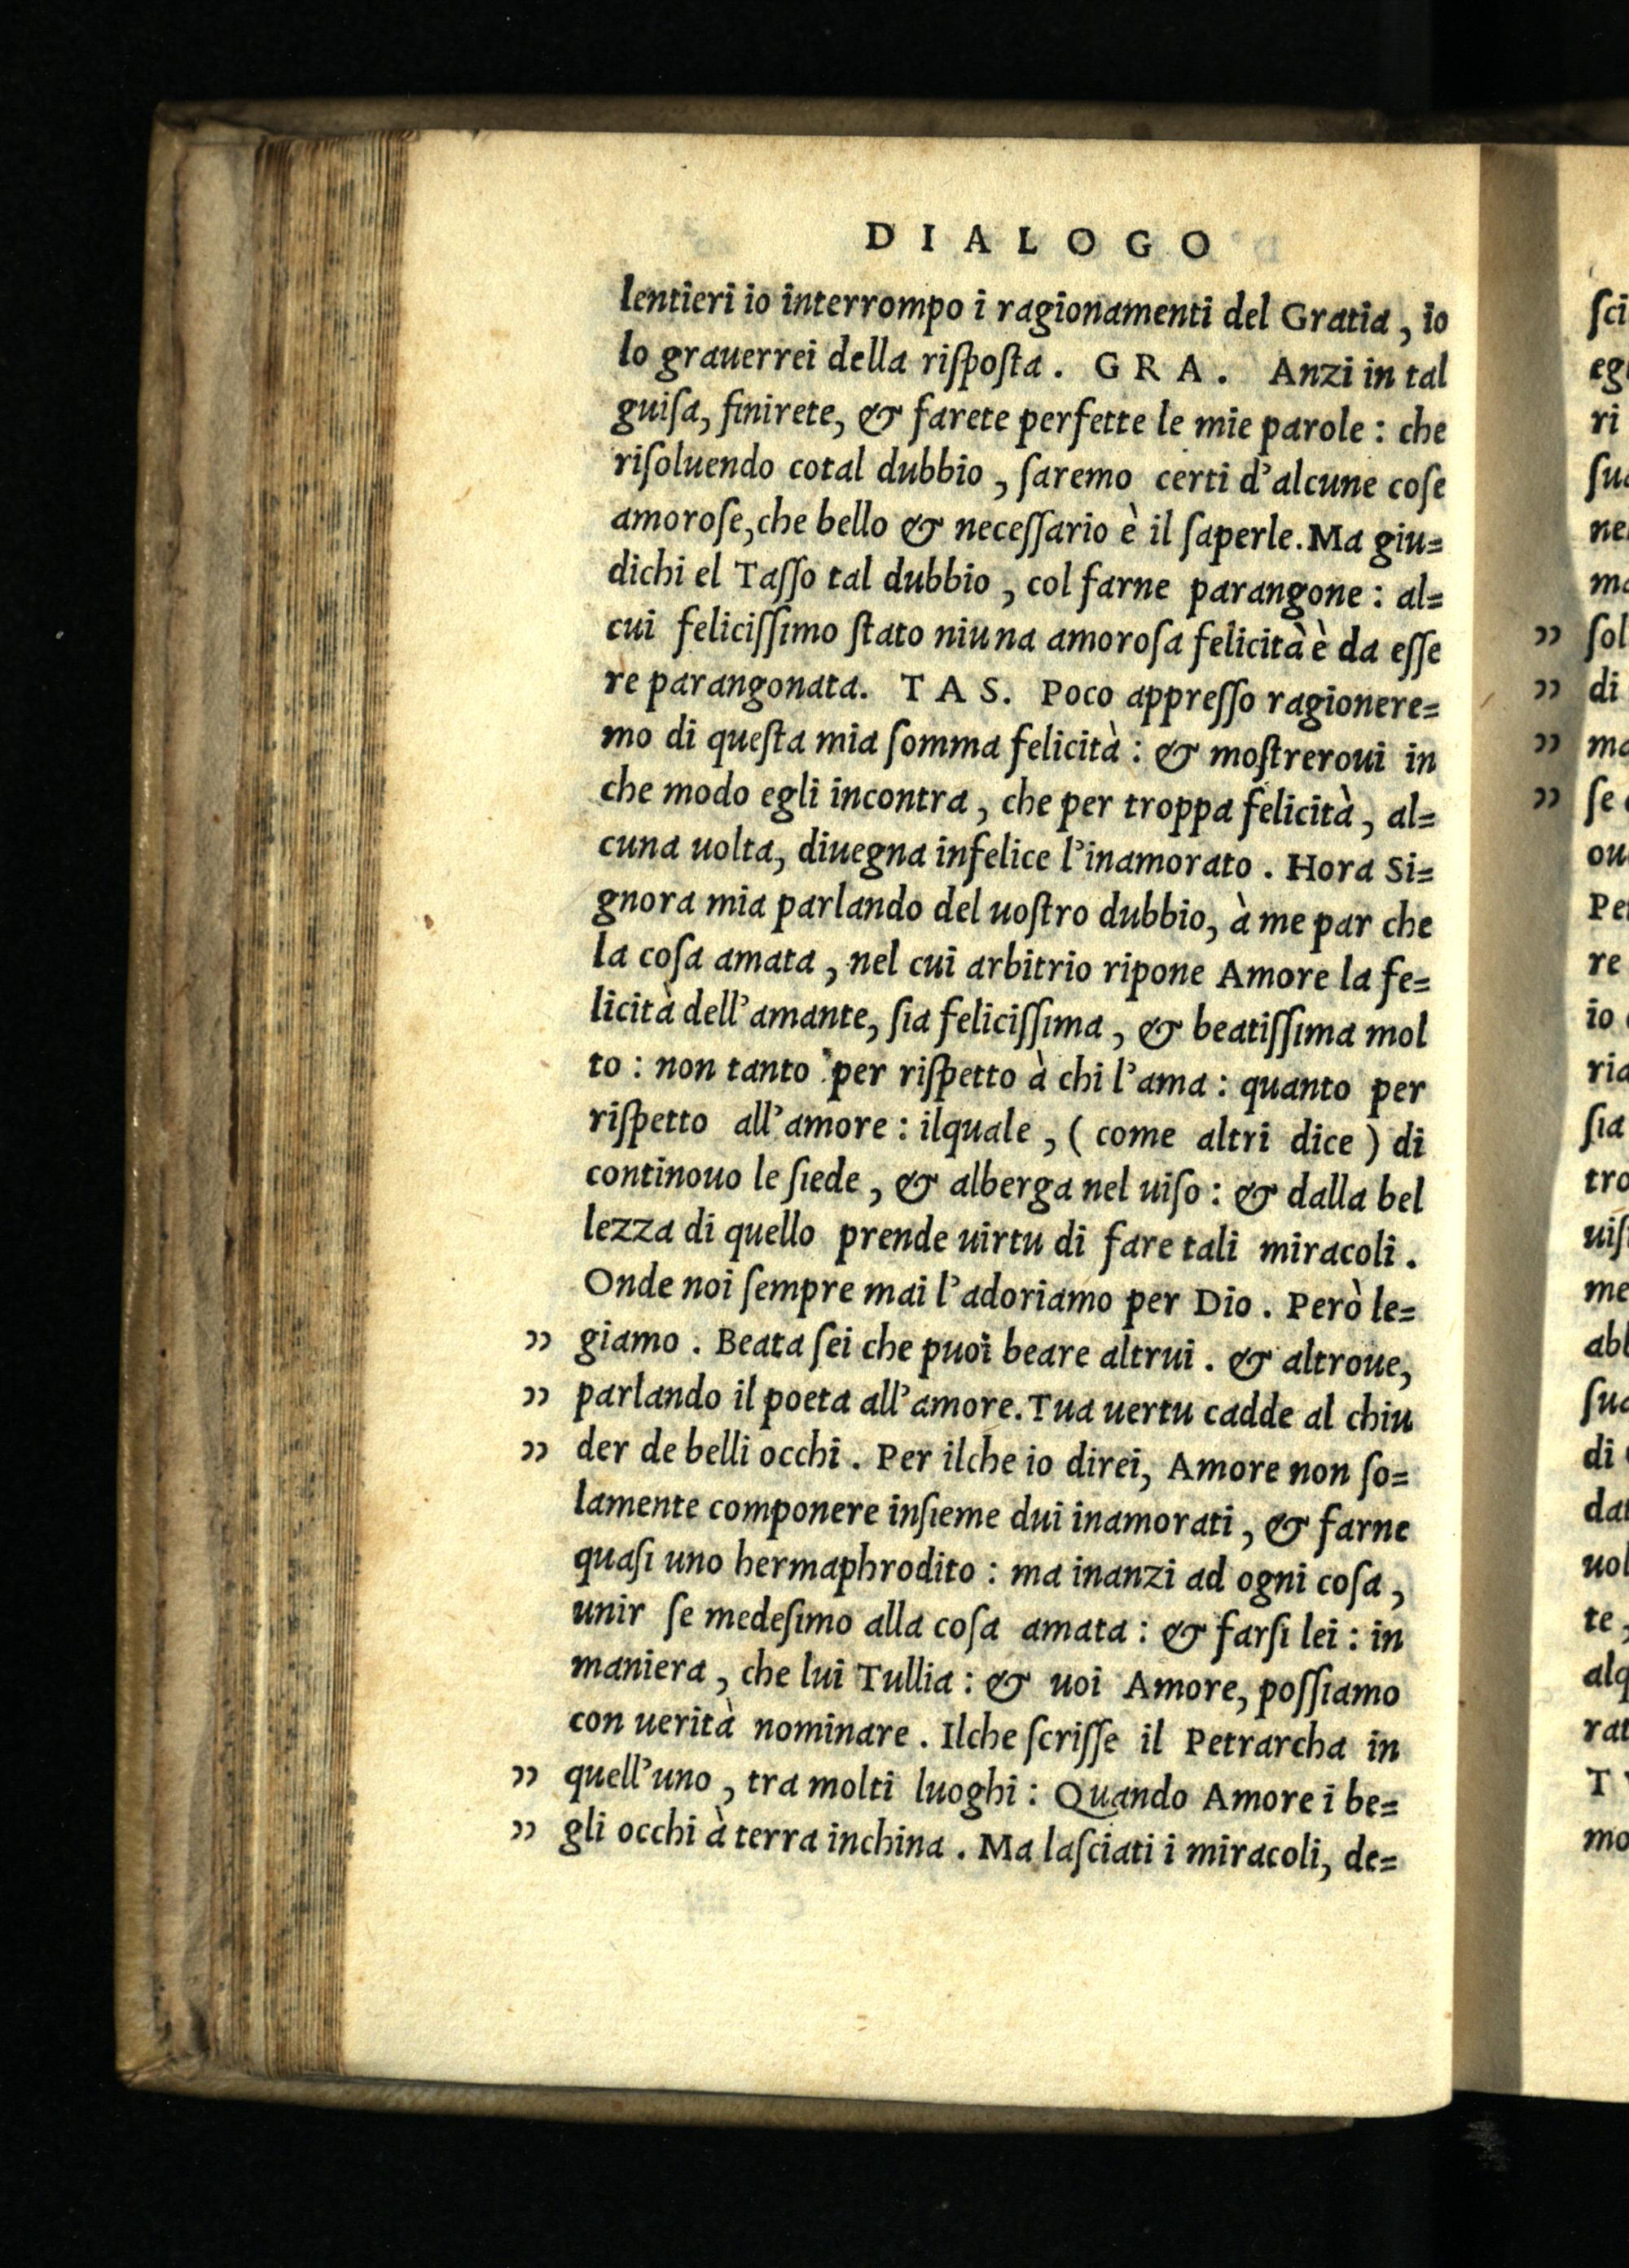 DIALOGO
lentieri io interrompo i ragionamenti del Gratia, io
lo grauerrei della riſpoſta. GRA. Anzi in tal
guiſa, finirete, & farete perfette le mie parole: che
riſoluendo cotal dubbio, ſaremo certi d'alcune coſe
amoroſe, che bello & neceſſario è il ſaperle. Ma giu=
dichi el Taſſo tal dubbio, col farne parangone: al=
cui feliciſſimo ſtato niuna amoroſa felicità è da eſſe
re parangonata. TAS. Poco appreſſo ragionere=
mo di queſta mia ſomma felicità: & moſtreroui in
che modo egli incontra, che per troppa felicità, al=
cuna uolta, diuegna infelice l'inamorato. Hora Si=
gnora mia parlando del uoſtro dubbio, à me par che
la coſa amata, nel cui arbitrio ripone Amore la fe=
licità dell'amante, ſia feliciſſima, & beatiſſima mol
to: non tanto per riſpetto à chi l'ama: quanto per
riſpetto all'amore: ilquale, (come altri dice) di
continouo le ſiede, & alberga nel uiſo: & dalla bel
lezza di quello prende uirtu di fare tali miracoli.
Onde noi ſempre mai l'adoriamo per Dio. Però le=
” giamo. Beata ſei che puoi beare altrui. & altroue,
” parlando il poeta all'amore. Tua uertu cadde al chiu
” der de belli occhi. Per ilche io direi, Amore non ſo=
lamente componere inſieme dui inamorati, & farne
quaſi uno hermaphrodito: ma inanzi ad ogni coſa,
unir ſe medeſimo alla coſa amata: & farſi lei: in
maniera, che lui Tullia: & uoi Amore, poſſiamo
con uerità nominare. Ilche ſcriſſe il Petrarcha in
” quell'uno, tra molti luoghi: Quando Amore i be=
” gli occhi à terra inchina. Ma laſciati i miracoli, de=